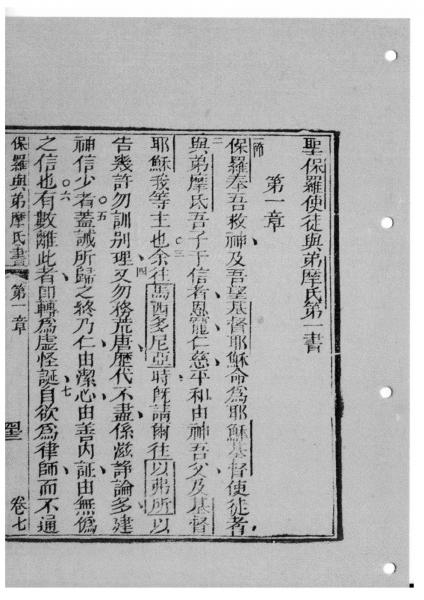 聖保羅使徒與弟摩氏第一書
第一章
一節
保羅奉吾救神及吾望基督耶穌命為耶穌基督使徒者
二
與弟摩氏吾子于信者恩寵仁慈平和由神吾父及基督
三
耶穌我等主也余往馬西多尼亞時既請爾往以弗所以
四
告幾許勿訓别理又勿務荒唐歷代不盡係滋諍論多建
五
神信少者蓋誡所歸之終乃仁由潔心由善內証由無偽
六
之信也有數離此者即轉為虛怪誕自欲為律師而不通
七
保羅與弟摩氏書 第一章 卷七